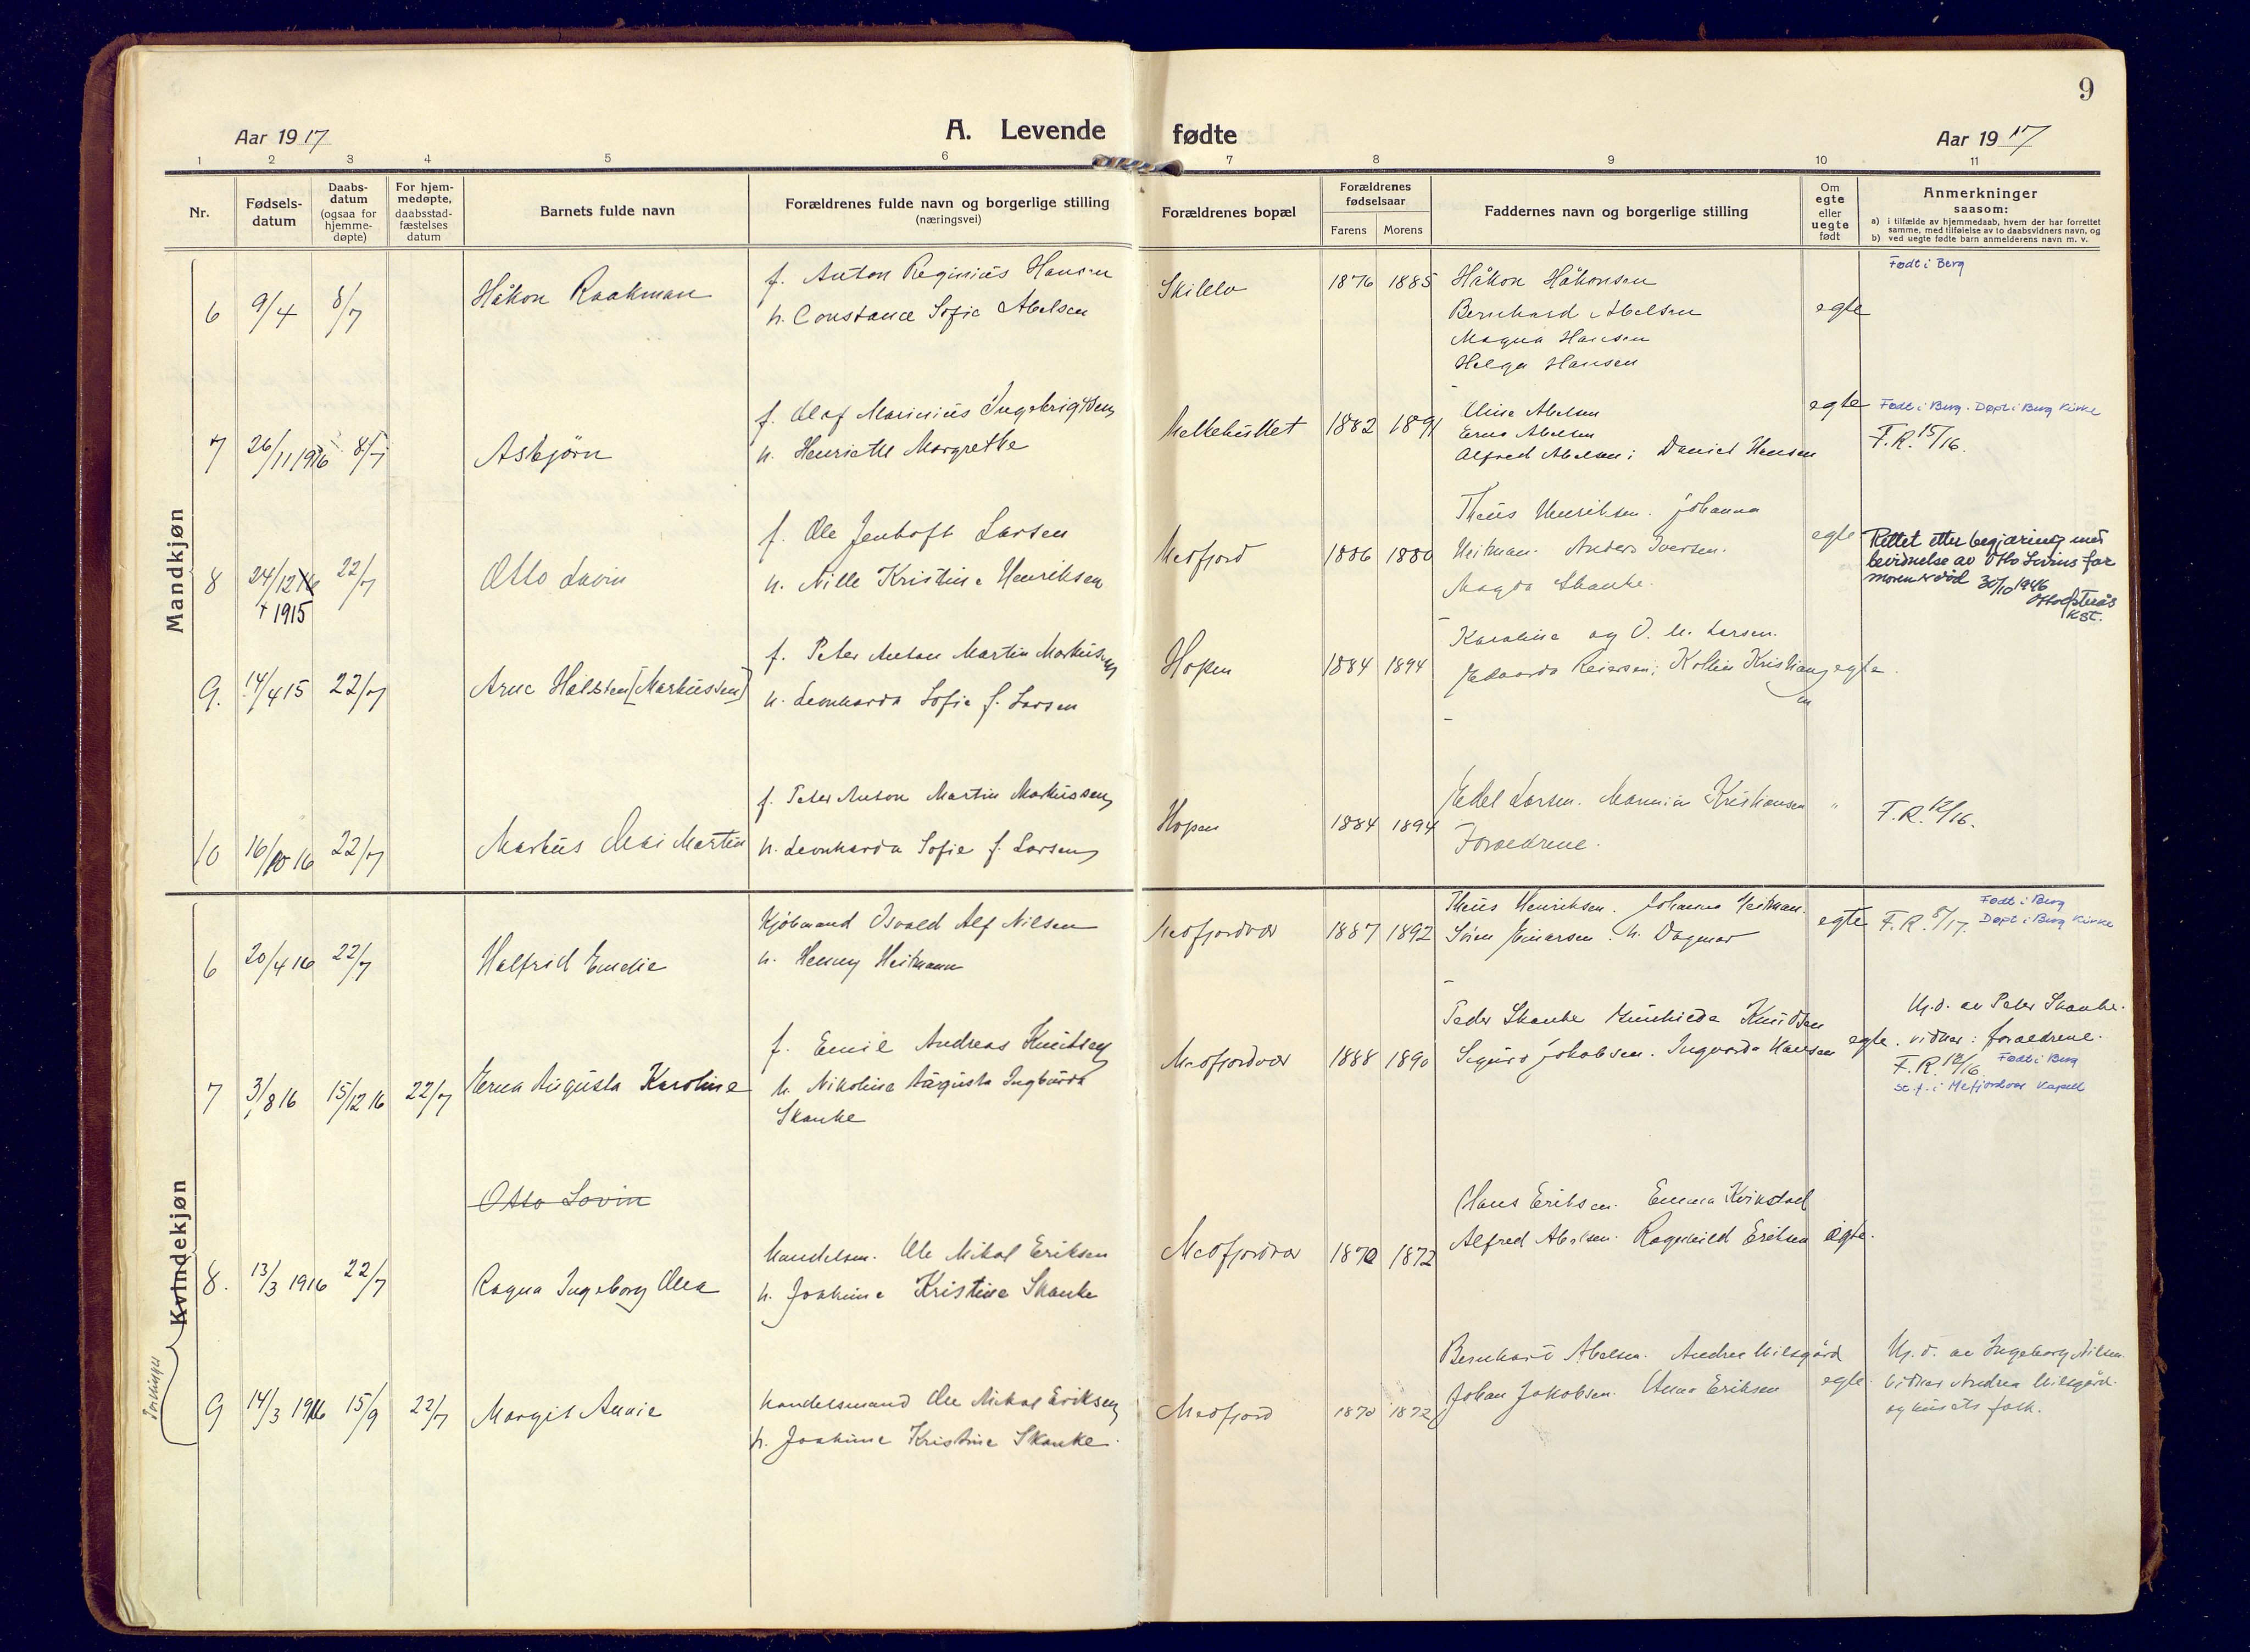 9
Aar 1917
A. Levende fødte
Aar 1917
1 2 3 4 5 6 7 8 9 10 11
Nr.
Fødsels-
datum
Daabs-
datum
(ogsaa for
hjemme-
døpte)
For hjem-
medøpte,
daabsstad-
fæstelses
datum
Barnets fulde navn
Forældrenes fulde navn og borgerlige stilling
(næringsvei)
Forældrenes bopæl
Forældrenes
fødselsaar
Farens Morens
Faddernes navn og borgerlige stilling
Om
egte
eller
uegte
født
Anmerkninger
saasom:
a) i tilfælde av hjemmedaab, hvem der har forrettet
samme, med tilføielse av to daabsvidners navn, og
b) ved uegte fødte barn anmelderens navn m. v.
Mandkjøn
6 9/4 8/7 Håkon Raakman
f. Anton Reginius Hansen
h. Constance Sofie Abelsen
1876 1885
Håkon Håkonsen
Bernhard Abelsen
Magna Hansen
Helga Hansen
egte
Født i Berg
7 26/11 1916 8/7 Asbjørn
f. Olaf Marinius Ingebrigtsen
h. Henriette Margrethe
1882 1891
Oline Abelsen
Erna Abelsen
Alfred Abelsen; Daniel Hansen
egte
Født i Berg. Døpt i Berg Kirke
F.R. 15/16.
8 24/12 16 22/7 Otto Lovin
+ 1915
f. Ole Jentoft Larsen
h. Nille Kristine Henriksen
Mefjord 1886 1880
Theus Henriksen. Johanna
Heitman. Anders Iversen.
Magda Skanke.
egte
Rettet etter begjæring med
bevidnelse av Otto Lovins far
moren er død 30/10 1946
kst.
9. 14/4 15 22/7 Arne Halsten [Markussen]
f. Peter Anton Martin Markussen
h. Leonharda Sofie f. Larsen
Hopen 1884 1894
Karoline og O. M. Larsen.
Edvarda Reiersen; Kristiansen
egte.
10 16/10 16 22/7 Markus Martin
f. Peter Anton Martin Markussen
h. Leonharda Sofie f. Larsen
Hopen 1884 1894
Edel Larsen. Kristiansen
Forældrene.
"
F.R. 12/16.
Kvindekjøn
6 20/4 16 22/7 Halfrid Emelie
Kjøbmand Osvald Alf Nilsen
h. Henny Heitmann
Mefjordvær 1887 1892
Theus Henriksen. Johanna Heitman.
Einarsen. h. Dagmar
egte
F.R. 8/17.
Født i Berg
Døpt i Berg Kirke
7 31/8 16 15/12 16 22/7 Erna Augusta Karoline
f. Emil Andreas Knutsen
h. Nikoline Augusta Ingvarda
Skanke
Mefjordvær 1888 1890
Peder Skanke Gunhilda Knudsen
Sigurd Jakobsen. Ingvarda Hansen
egte.
Hj.d. av Peter Skanke.
vidner: forældrene.
F.R. 12/16
Født i Berg
st.f. i Mefjordvær Kapell
Otto Lovin
8. 13/3 1916 22/7 Ragna Ingeborg Olea
Handelsm. Ole Mikal Eriksen
h. Joakime Kristine Skanke
Medfjordvær 1870 1872
Hans Eriksen. Emma Kvikstad
Alfred Abelsen. Ragnhild Eriksen
egte.
9 14/3 1916 15/9 22/7 Margit Annie
Handelsmand Ole Mikal Eriksen
h. Joakime Kristine Skanke.
Medfjord 1870 1872
Bernhard Abelsen. Andrea Nilsgård
Johan Jakobsen. Anna Eriksen
egte.
Hj.d. av Ingeborg Nilsen.
Vidner Andrea Nilsgård.
og husets folk.